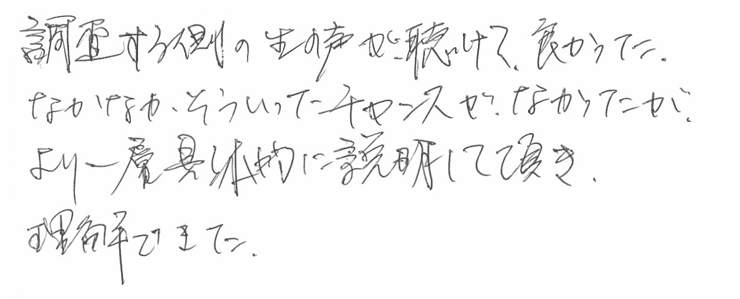 調査する側の生の声が、聴けて、良かった。
なかなか、そういったチャンスが、なかったが、
より一層具体的に説明して頂き、
理解できた。